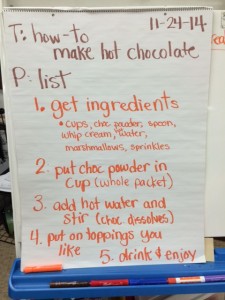 T: how-to 11-24-14
make hot chocolate
P: list
1. get ingredients
• cups, choc powder, spoon,
whip cream, water,
marshmallows, sprinkles
2. put choc powder in
cup (whole packet)
3. add hot water and
stir (choc dissolves)
4. put on toppings you
like 5. drink & enjoy